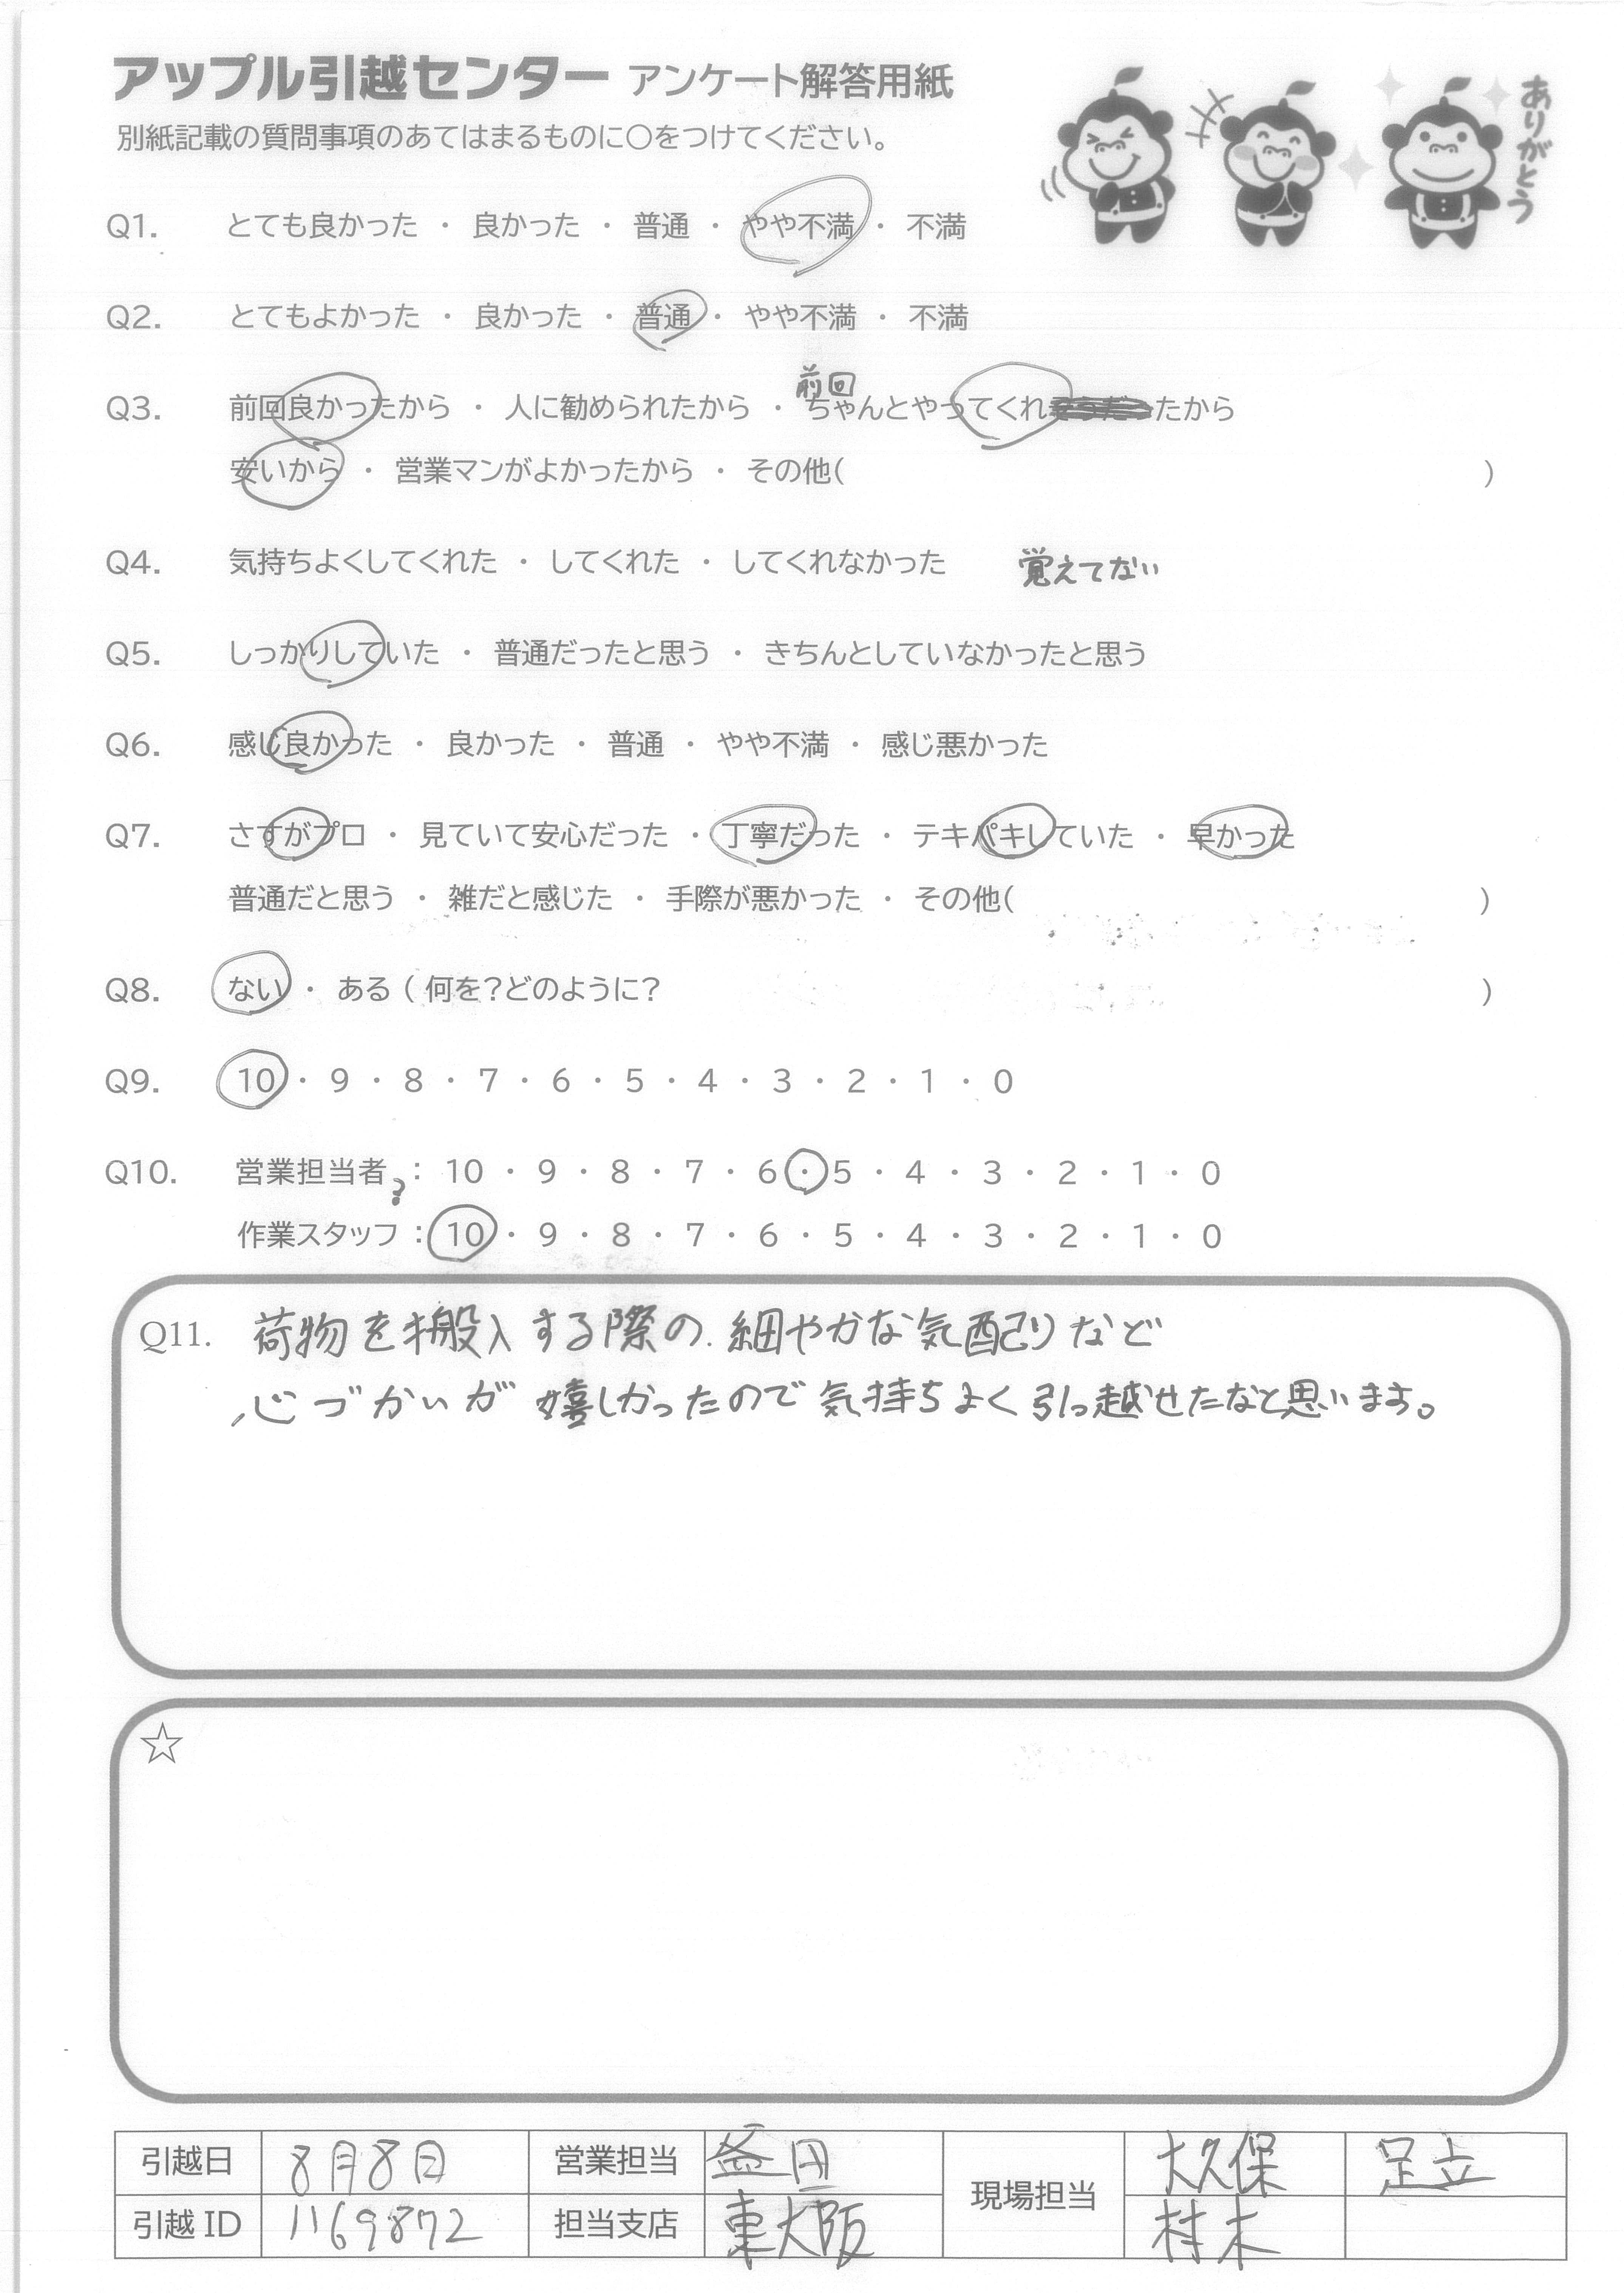 アップル引越センター アンケート解答用紙
別紙記載の質問事項のあてはまるものに〇をつけてください。
ありがとう
Q1. とても良かった ・ 良かった ・ 普通 ・ やや不満 ・ 不満
Q2. とてもよかった ・ 良かった ・ 普通 ・ やや不満 ・ 不満
前回
Q3. 前回良かったから ・ 人に勧められたから ・ ちゃんとやってくれたから
安いから ・ 営業マンがよかったから ・ その他( )
Q4. 気持ちよくしてくれた ・ してくれた ・ してくれなかった 覚えてない
Q5. しっかりしていた ・ 普通だったと思う ・ きちんとしていなかったと思う
Q6. 感じ良かった ・ 良かった ・ 普通 ・ やや不満 ・ 感じ悪かった
Q7. さすがプロ ・ 見ていて安心だった ・ 丁寧だった ・ テキパキしていた ・ 早かった
普通だと思う ・ 雑だと感じた ・ 手際が悪かった ・ その他( )
Q8. ない ・ ある ( 何を?どのように? )
Q9. 10 ・ 9 ・ 8 ・ 7 ・ 6 ・ 5 ・ 4 ・ 3 ・ 2 ・ 1 ・ 0
Q10. 営業担当者?: 10 ・ 9 ・ 8 ・ 7 ・ 6 ・ 5 ・ 4 ・ 3 ・ 2 ・ 1 ・ 0
作業スタッフ : 10 ・ 9 ・ 8 ・ 7 ・ 6 ・ 5 ・ 4 ・ 3 ・ 2 ・ 1 ・ 0
Q11. 荷物を搬入する際の、細やかな気配りなど
心づかいが嬉しかったので気持ちよく引っ越せたなと思います。
☆
引越日 8月8日 営業担当 益田 現場担当 大久保 足立
引越ID 1169872 担当支店 東大阪 村木